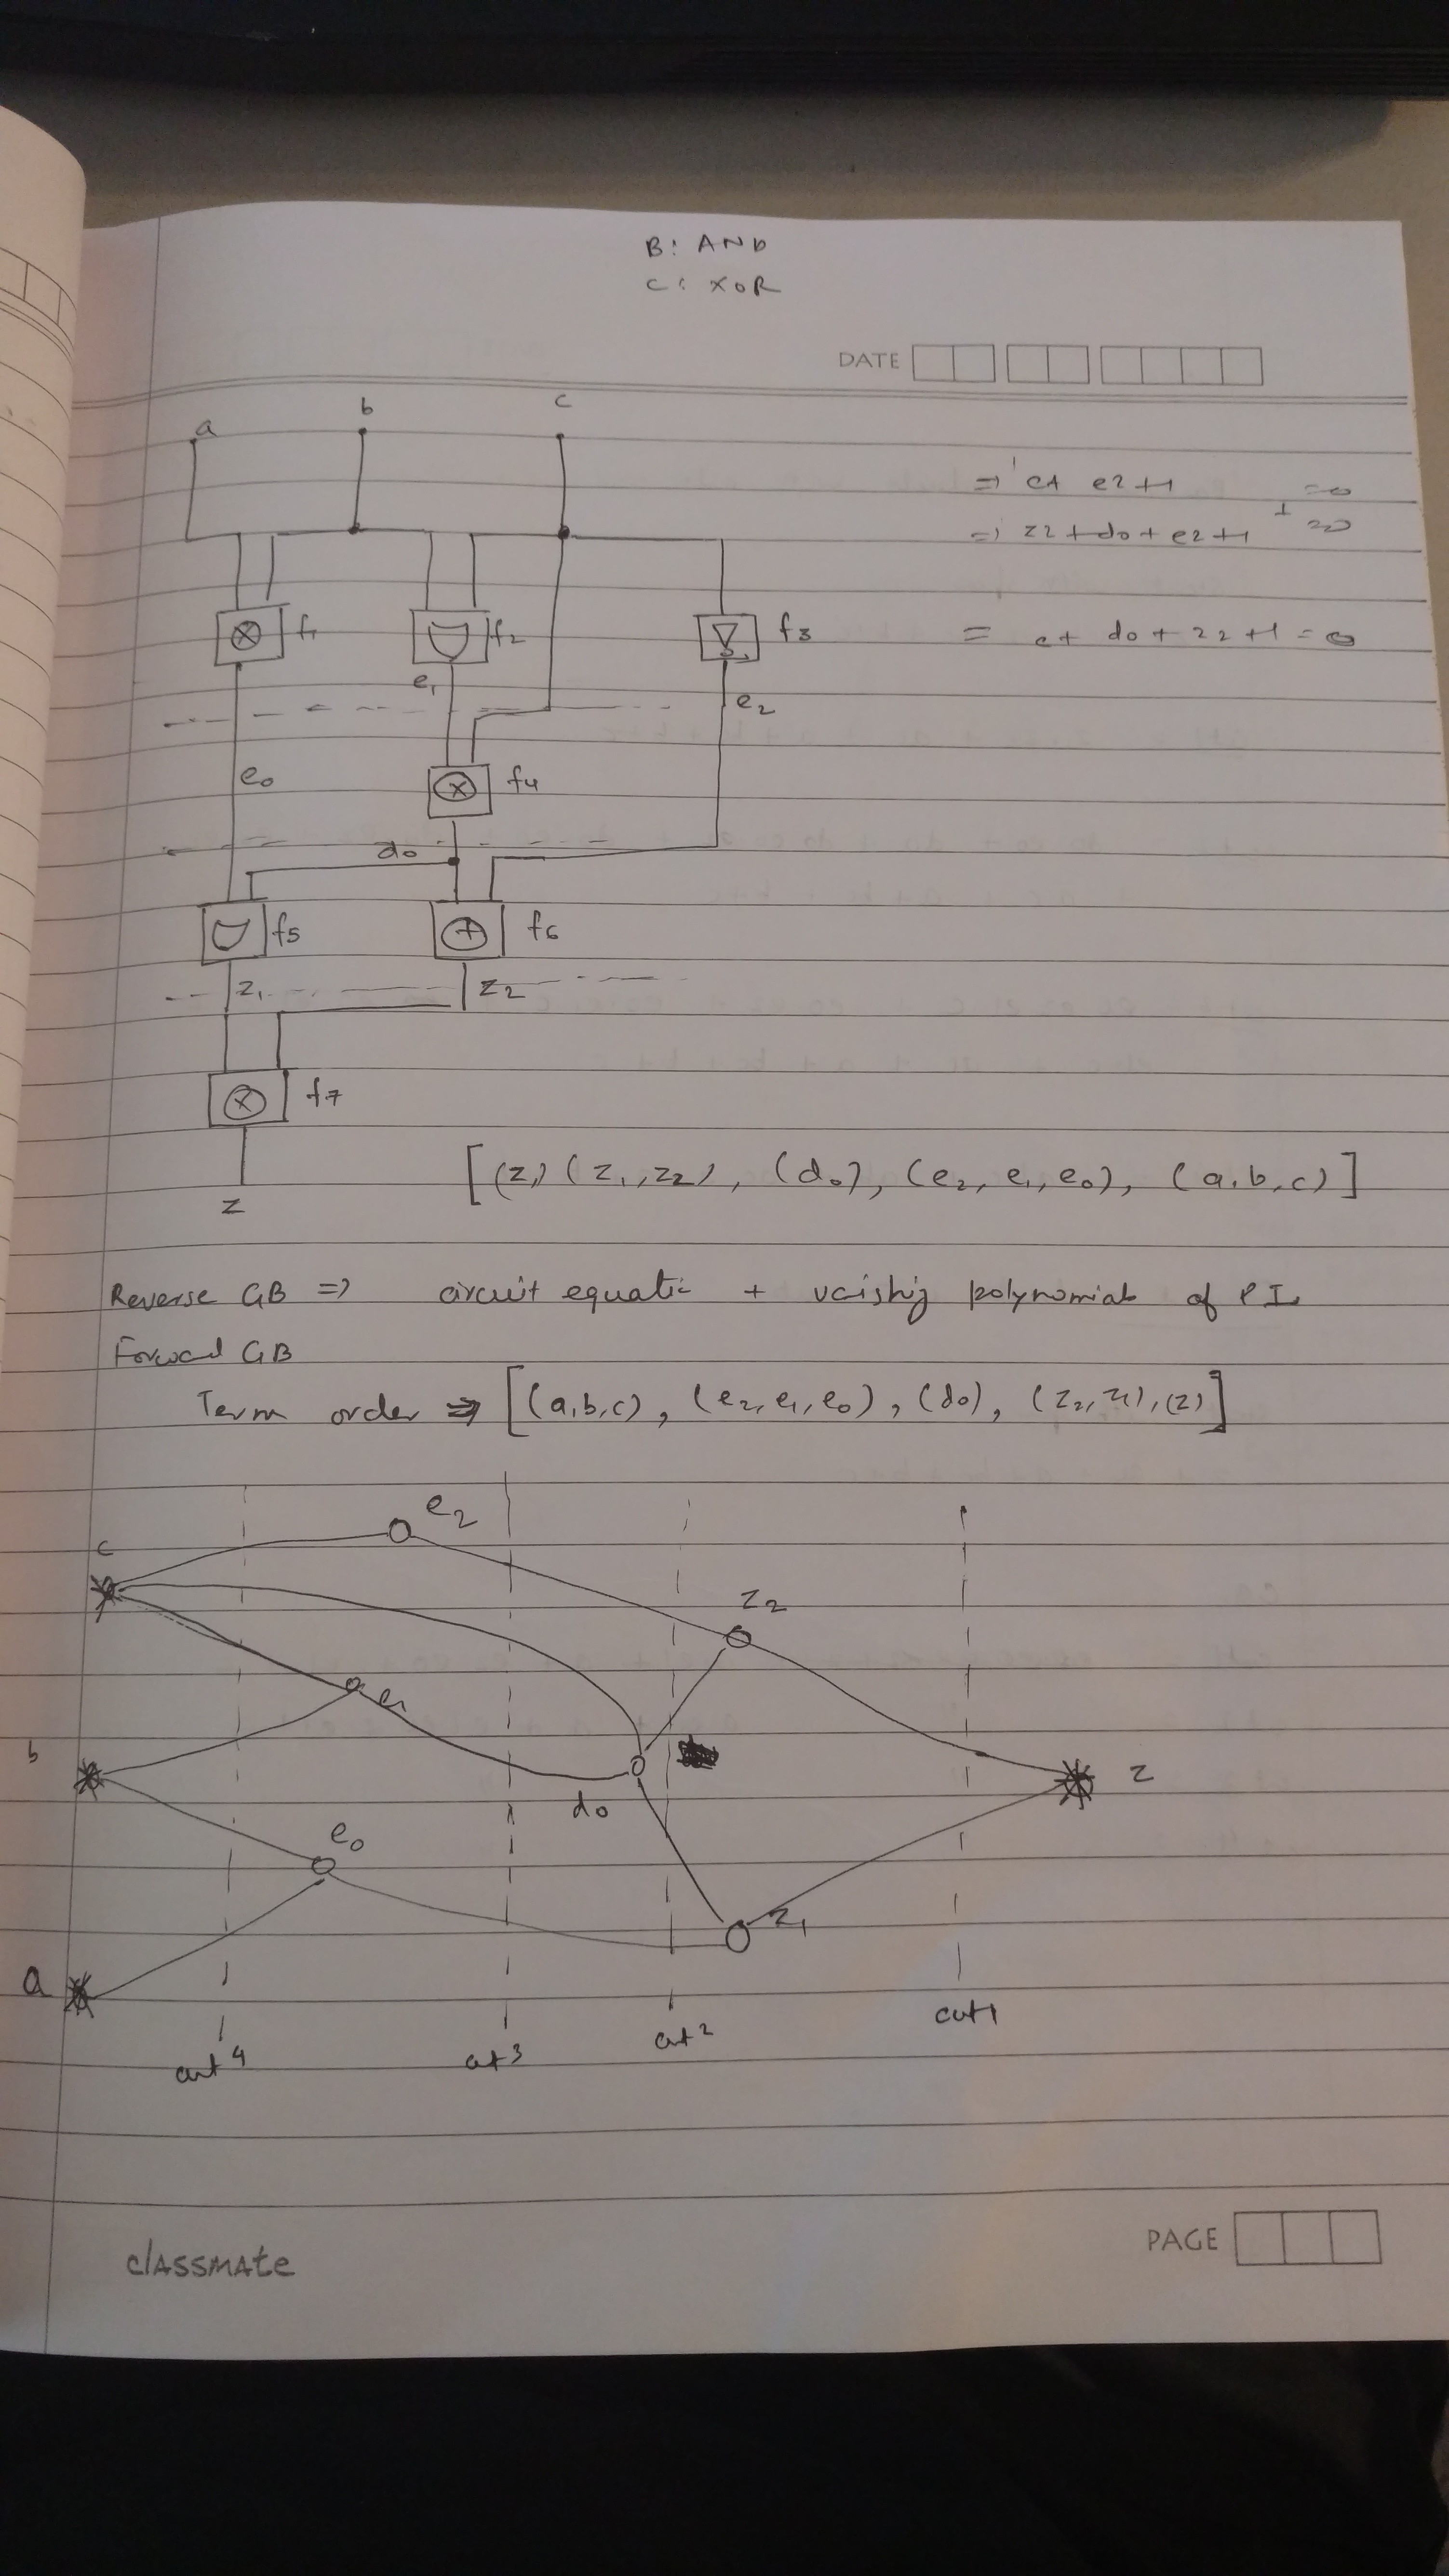 B: AND
C: XOR
DATE
a b c
=> c+ e2+1 =0
=> z2+do+e2+1 =0
= c+ do+z2+1=0
f1 f2 f3
e1
e2
e0 f4
do
f5 f6
z1 z2
f7
z
[(z,) (z1,z2), (do), (e2, e1, e0), (a,b,c)]
Reverse GB => circuit equatic + polynomials of PI
Forward GB
Term order => [(a,b,c), (e2,e1,e0), (do), (z2,z1),(z)]
e2
c
z2
e1
b
z
do
e0
z1
a
cut1
cut2
cut3
cut4
PAGE
classmate